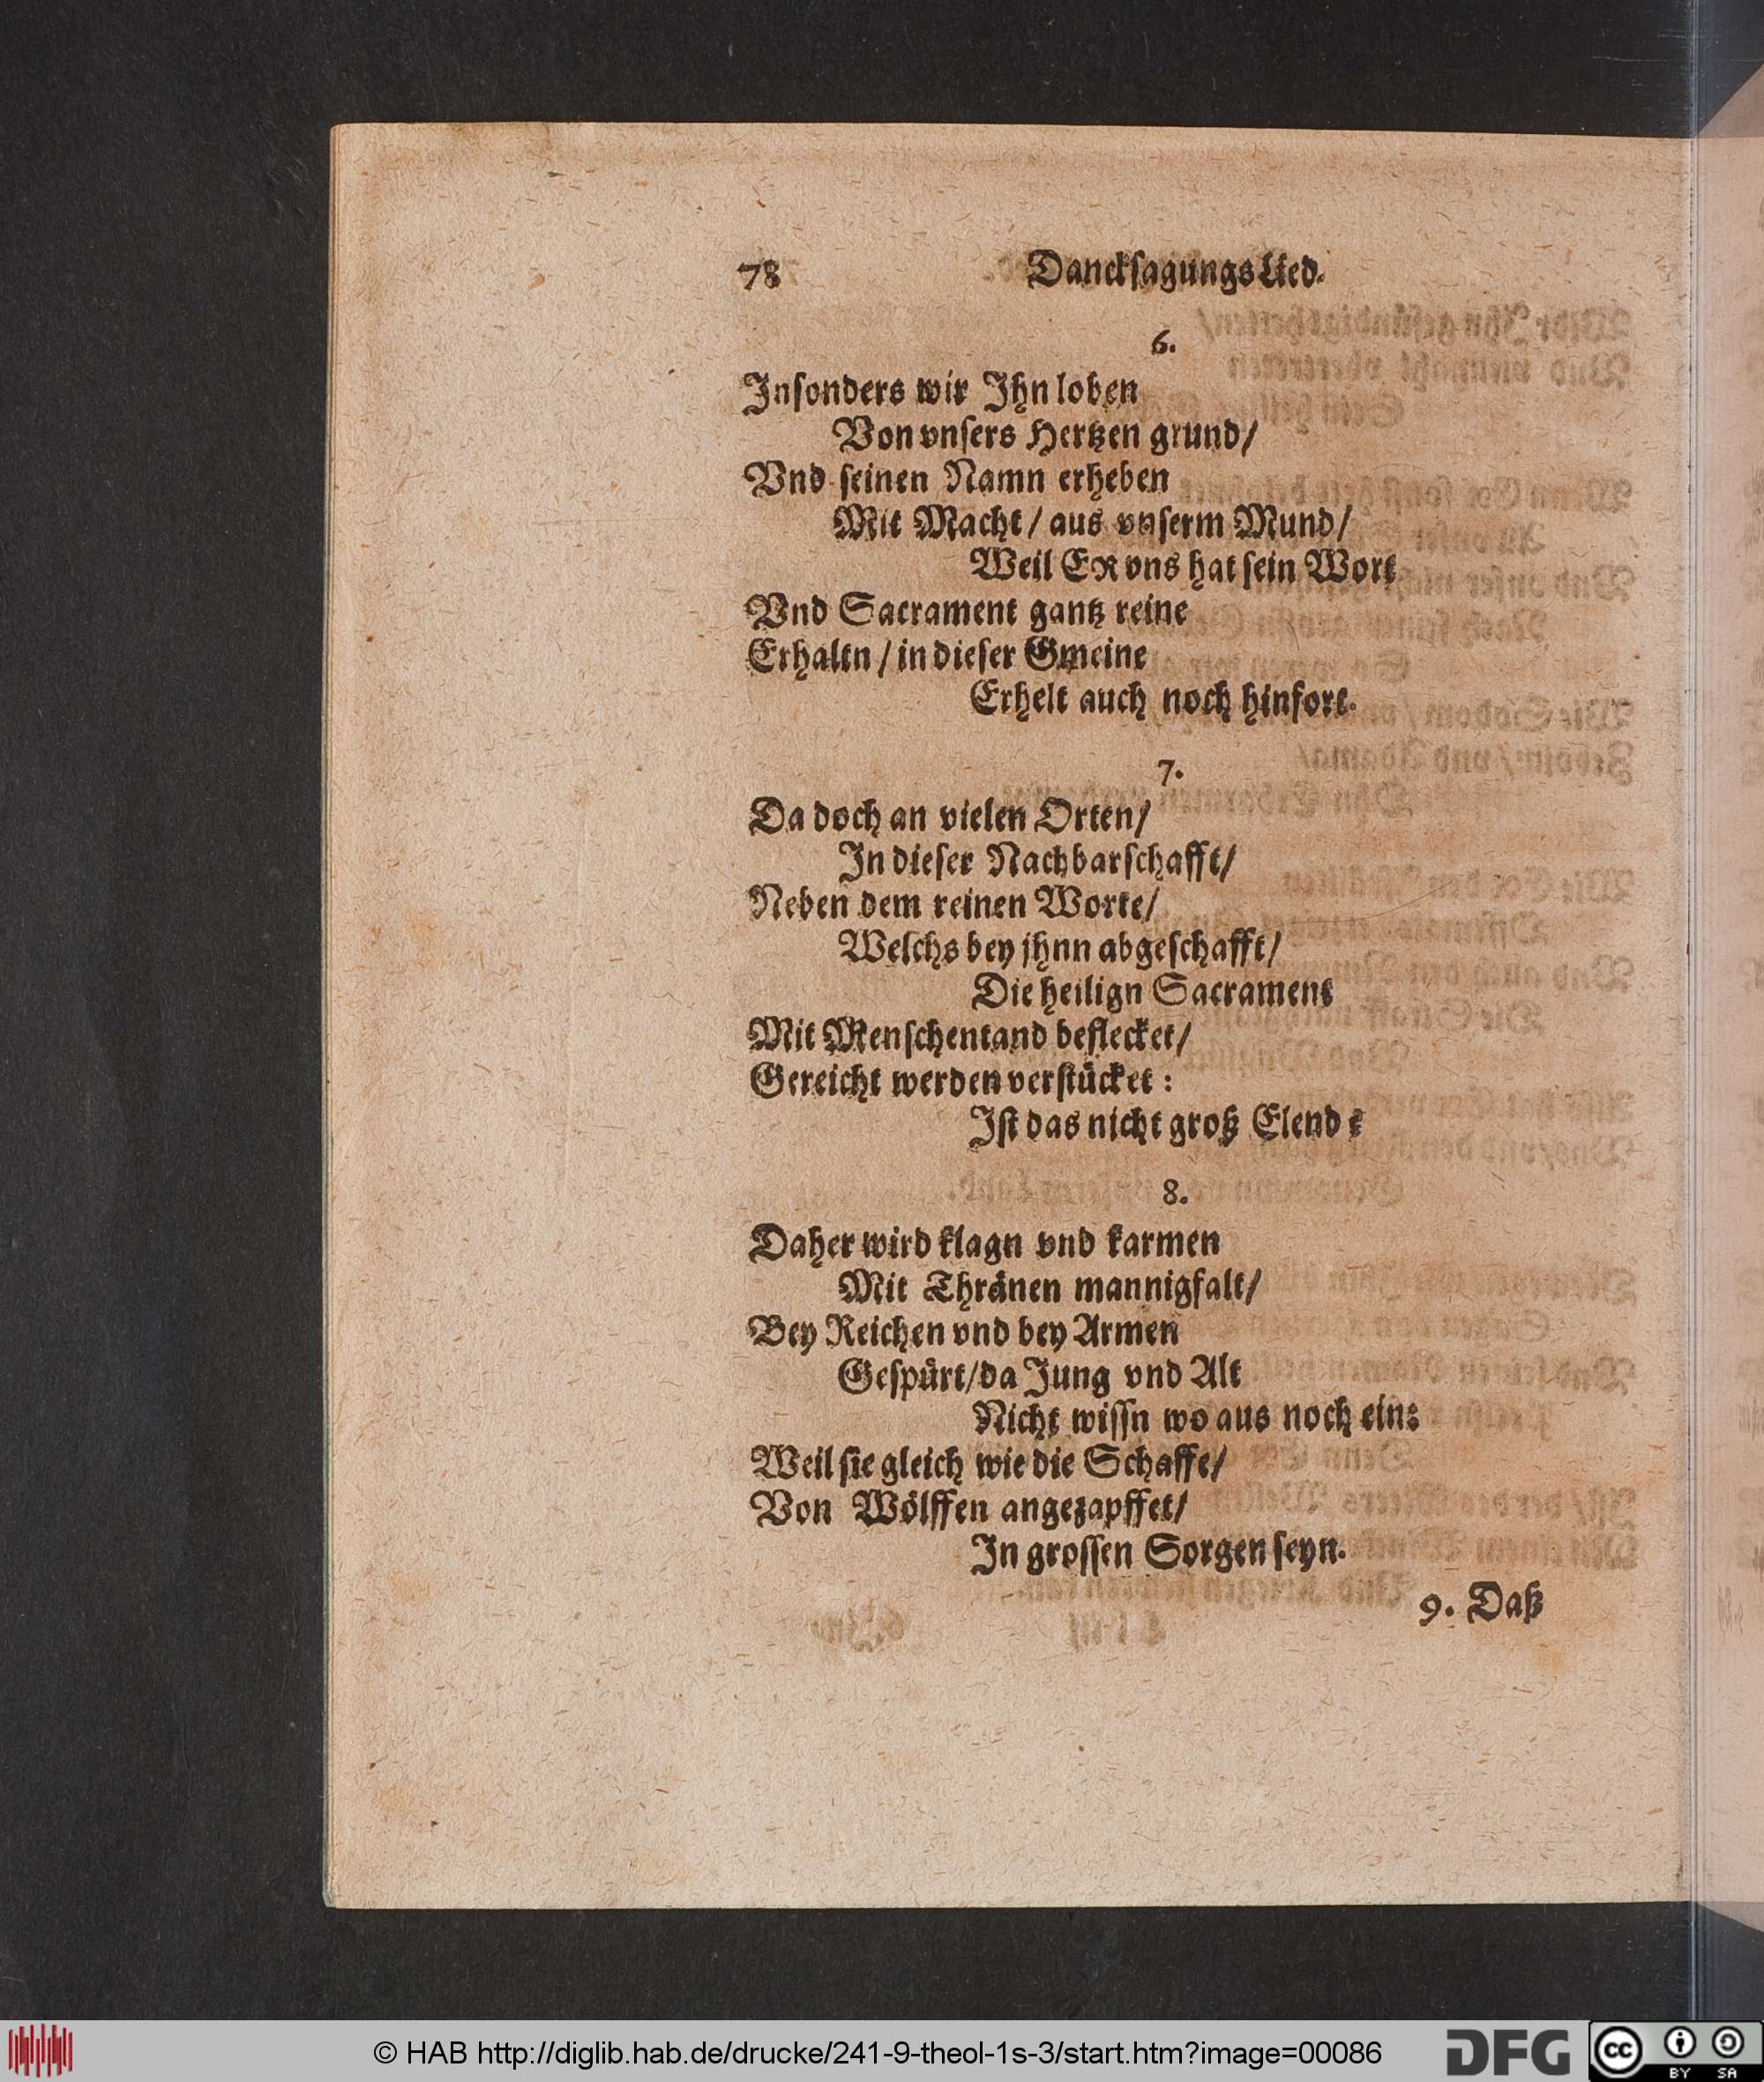 78 Danckſagungs Lied.
6.
Jnſonders wir Jhn loben
Von vnſers Hertzen grund/
Vnd ſeinen Namn erheben
Mit Macht / aus vnſerm Mund/
Weil ER vns hat ſein Wort
Vnd Sacrament gantz reine
Erhaltn / in dieſer Gmeine
Erhelt auch noch hinfort.
7.
Da doch an vielen Orten/
Jn dieſer Nachbarſchafft/
Neben dem reinen Worte/
Welchs bey jhnn abgeſchafft/
Die heilign Sacrament
Mit Menſchentand beflecket/
Gereicht werden verſtuͤcket :
Jſt das nicht groß Elend ?
8.
Daher wird klagn vnd karmen
Mit Thraͤnen mannigfalt/
Bey Reichen vnd bey Armen
Geſpuͤrt/da Jung vnd Alt
Nicht wiſſn wo aus noch ein:
Weil ſie gleich wie die Schaffe/
Von Woͤlffen angezapffet/
Jn groſſen Sorgen ſeyn.
9. Daß
© HAB http://diglib.hab.de/drucke/241-9-theol-1s-3/start.htm?image=00086
DFG
cc BY SA